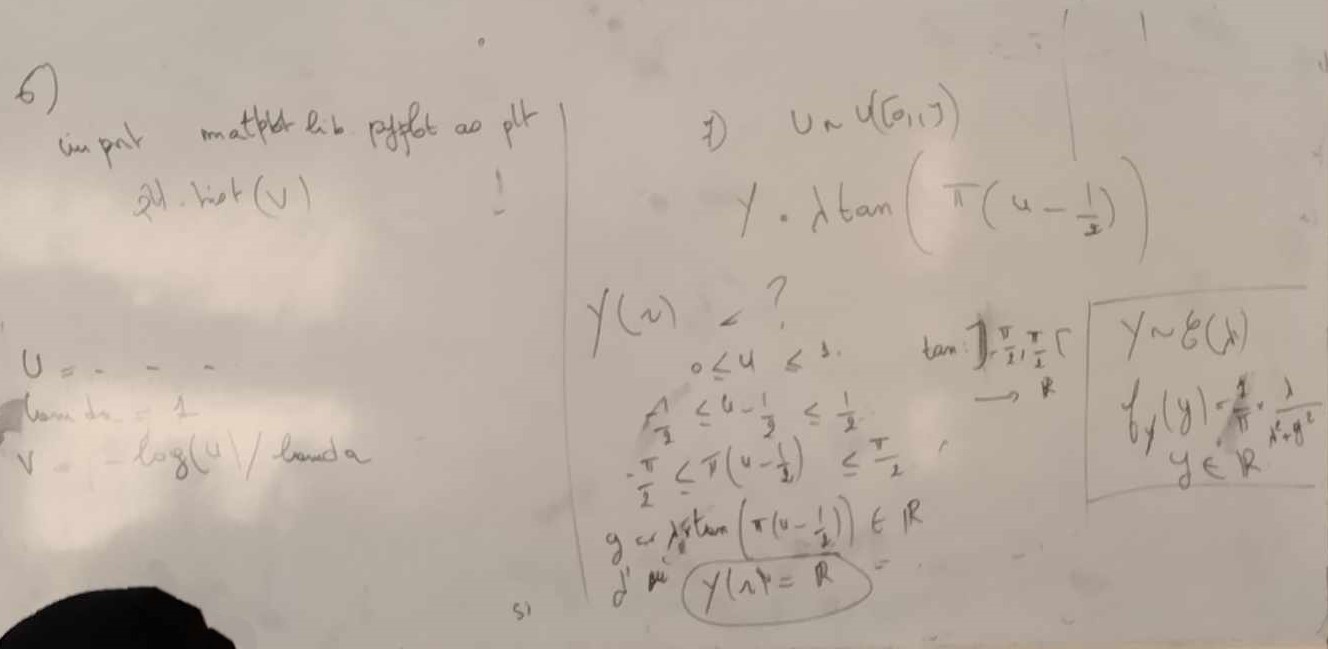 6)
import matplotlib.pyplot as plt
plt.hist(V) !
U = - - -
lamda = 1
V = -log(U)/lamda
7) U ~ U([0,1])
Y = λ tan(π(u - 1/2))
Y(Ω) = ?
0 ≤ u ≤ 1.
-1/2 ≤ u - 1/2 ≤ 1/2
-π/2 ≤ π(u - 1/2) ≤ π/2
y = λ tan(π(u - 1/2)) ∈ ℝ
d'où Y(Ω) = ℝ
tan: ]-π/2, π/2[
→ ℝ
Y ~ C(λ)
f_Y(y) = 1/π · λ/(λ²+y²)
y ∈ ℝ